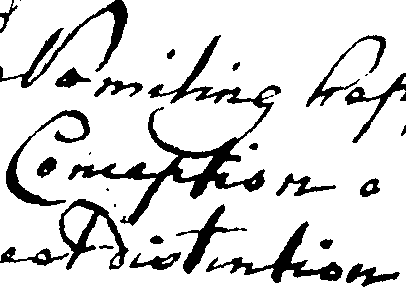 Vomiting hap
Conception o
Distintion